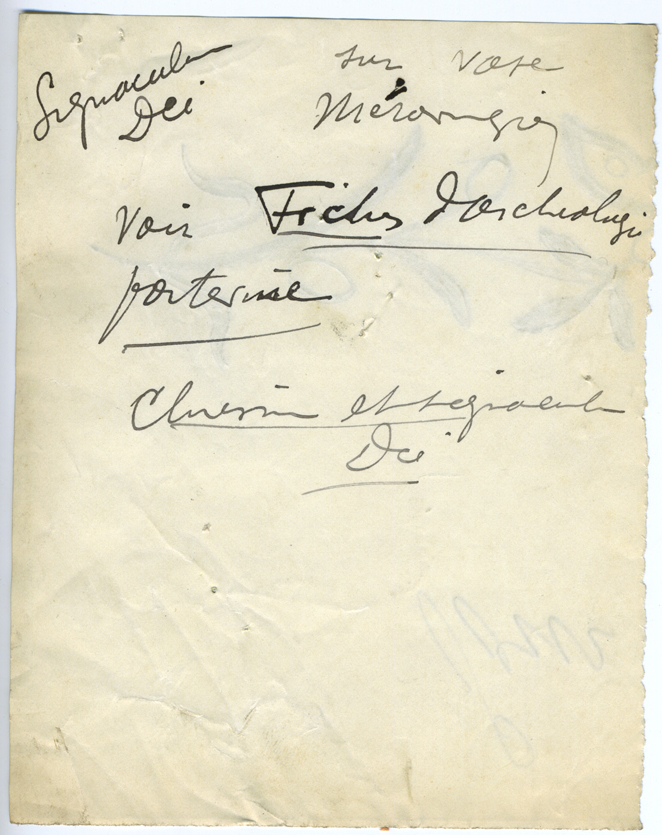 Signaculum
Dei
sur vase
Mérovingien
Voir Fiches d'archeologie
poitevine
Chrisme et signaculum
Dei